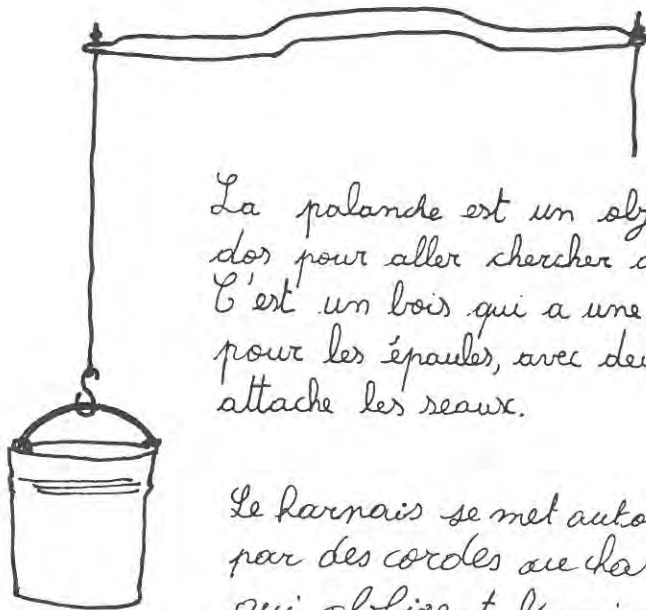 La palanche est un obj
dos pour aller chercher d
C'est un bois qui a une
pour les épaules, avec deu
attache les seaux.
Le harnais se met auto
par des cordes au cha